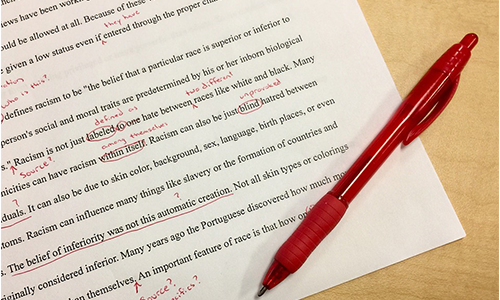 iews have been working
ould be allowed at all. Because of these
they here
given a low status even if entered through the proper chan
who is this?
defines racism to be "the belief that a particular race is superior or inferior to
person's social and moral traits are predetermined by his or her inborn biological
defined as
two different
unprovoked
s." Racism is not just labeled to one hate between races like white and black. Many
Source?
among themselves
nicities can have racism within itself. Racism can also be just blind hatred between
duals. It can also be due to skin color, background, sex, language, birth places, or even
?
toms. Racism can influence many things like slavery or the formation of countries and
?
s. The belief of inferiority was not this automatic creation. Not all skin types or colorings
riginally considered inferior. Many years ago the Portuguese discovered how much mo
tion themselves. An important feature of race is that how
Source?
?